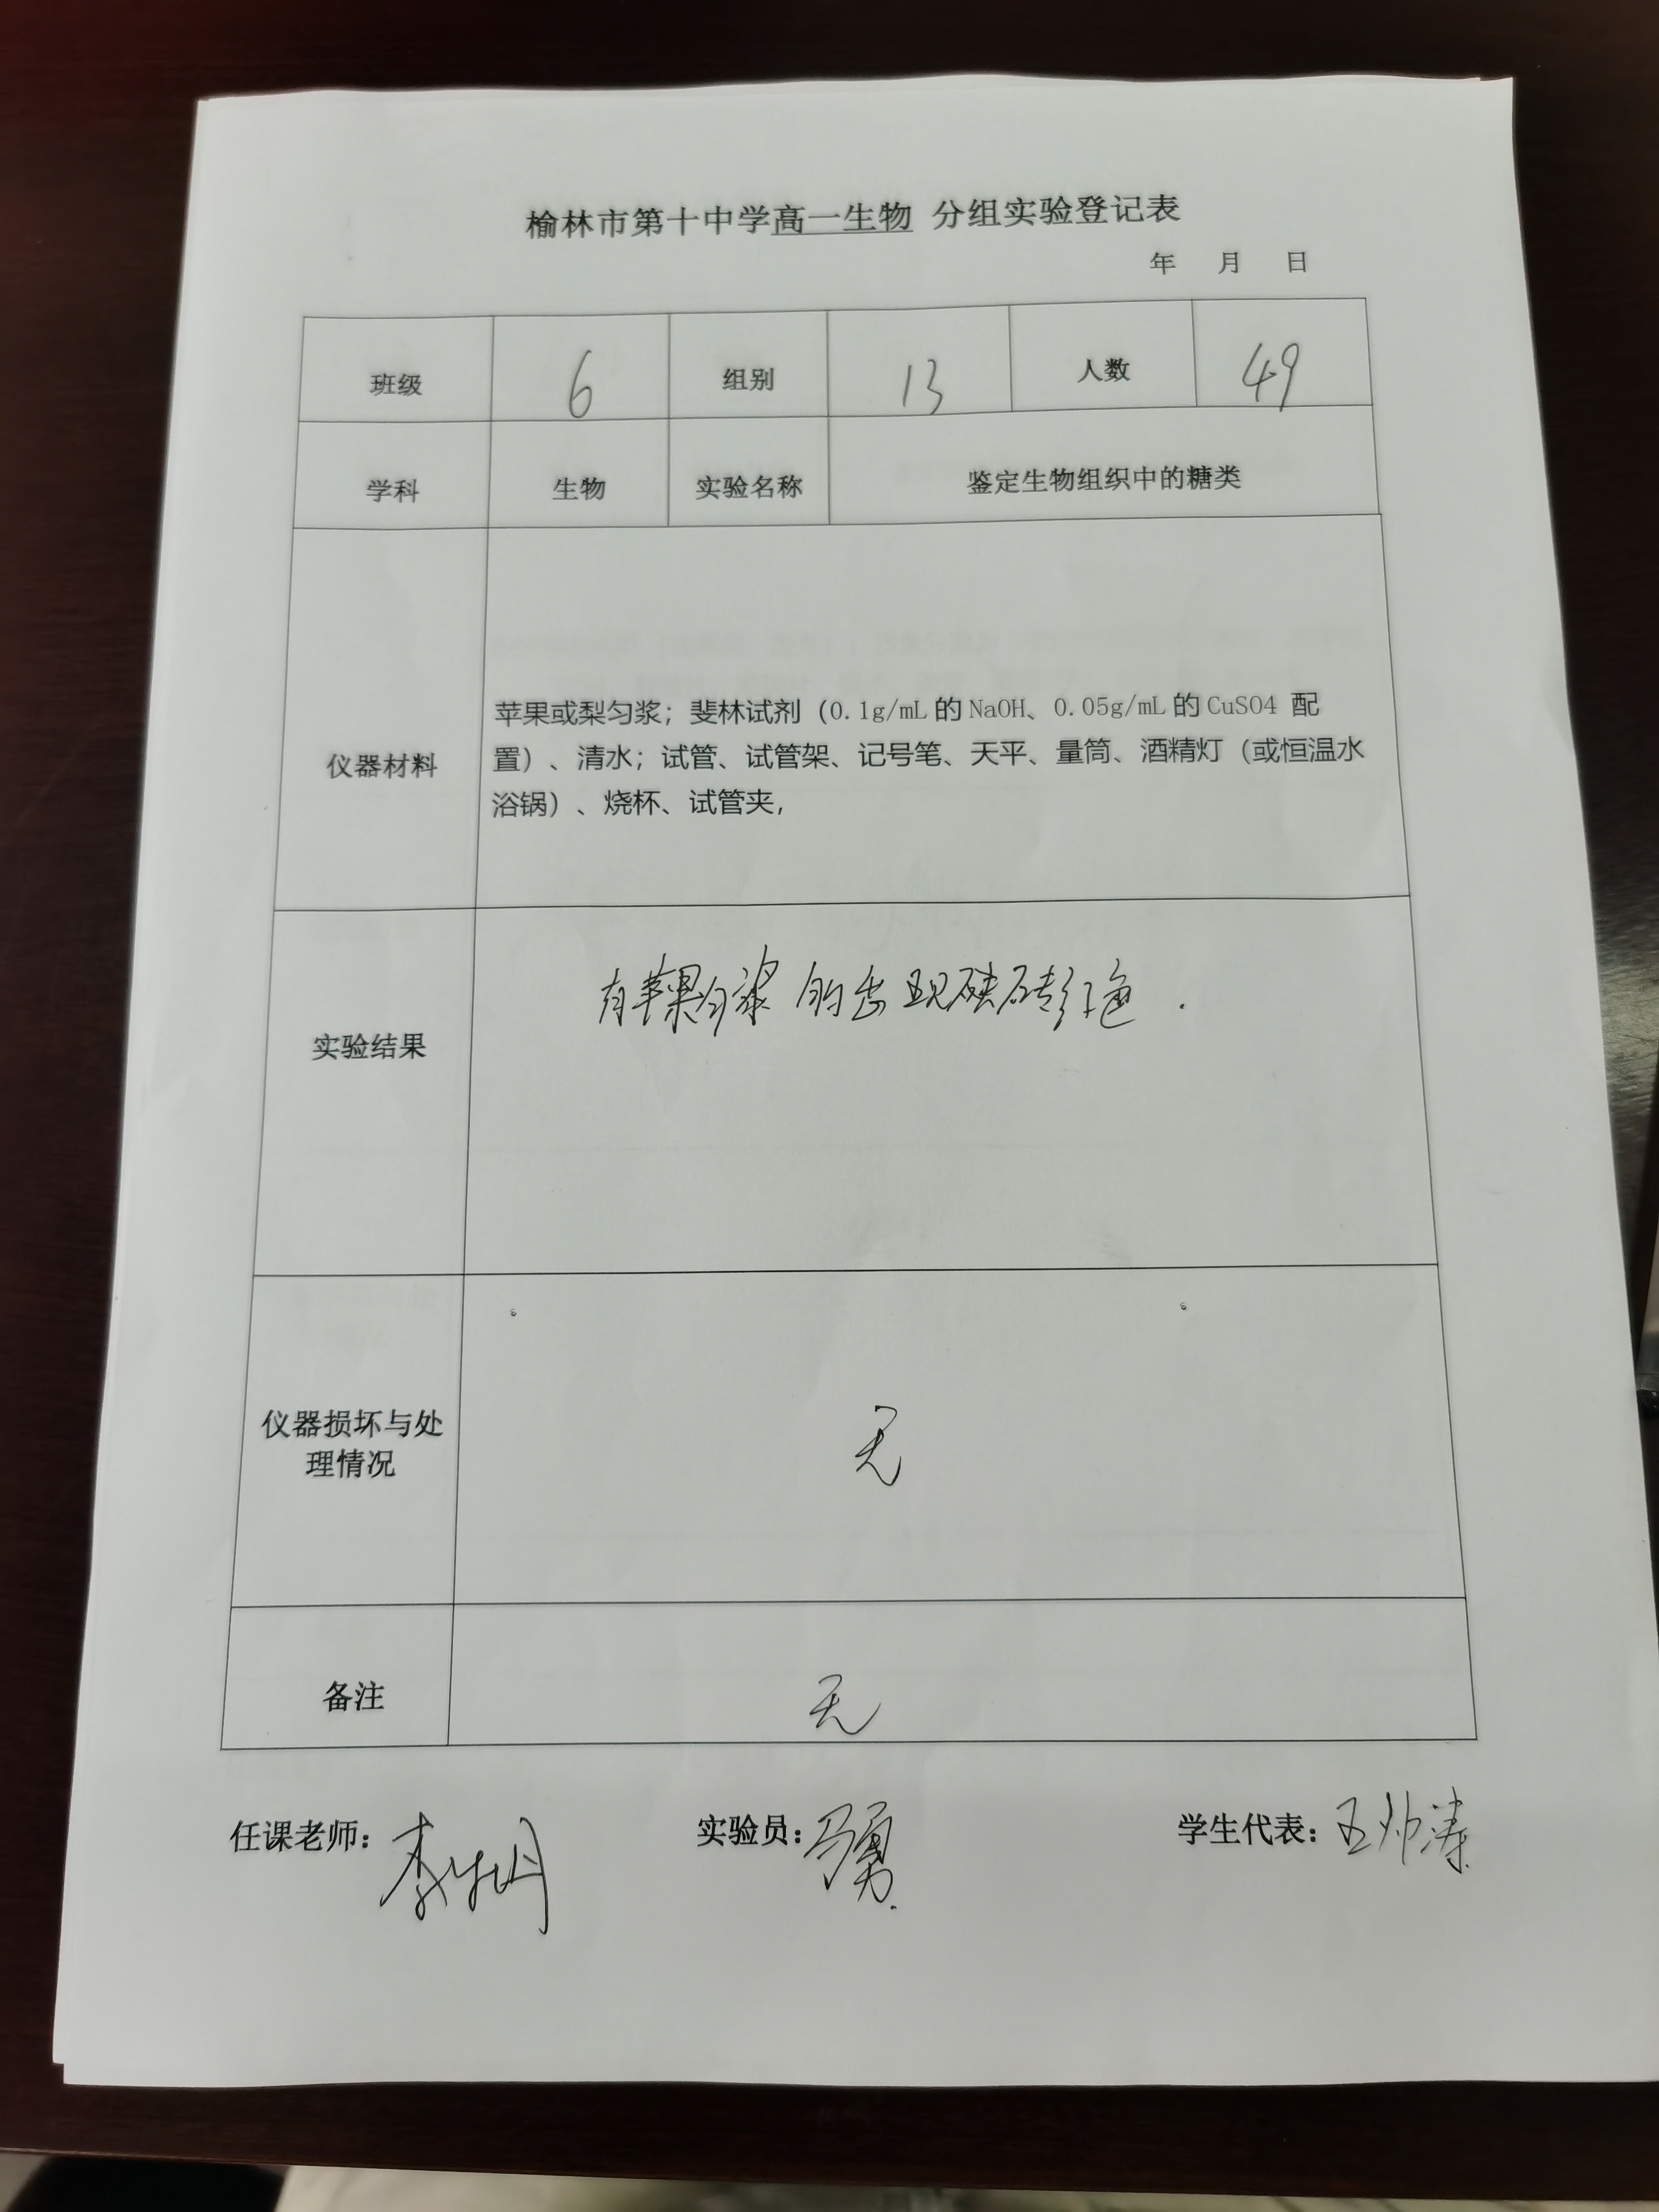 榆林市第十中学高一生物 分组实验登记表
年 月 日
班级 6 组别 13 人数 49
学科 生物 实验名称 鉴定生物组织中的糖类
仪器材料
苹果或梨匀浆；斐林试剂（0.1g/mL的NaOH、0.05g/mL的CuSO4 配
置）、清水；试管、试管架、记号笔、天平、量筒、酒精灯（或恒温水
浴锅）、烧杯、试管夹，
实验结果
有苹果匀浆的出现砖红色.
仪器损坏与处
理情况
无
备注
无
任课老师： 李 实验员：马勇 学生代表：王帅涛